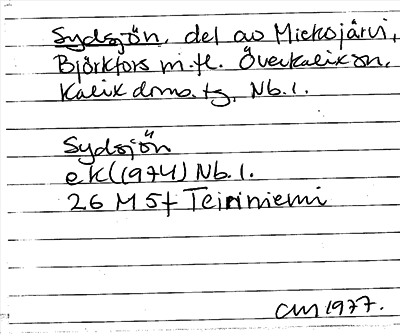 Sydsjön, del av Miekojärvi,
Björkfors m.fl. Överkalix sn,
Kalix dms. tg, Nb. l.
Sydsjön
ek (1974) Nb. l.
26 M 5f Teiriniemi
1977.